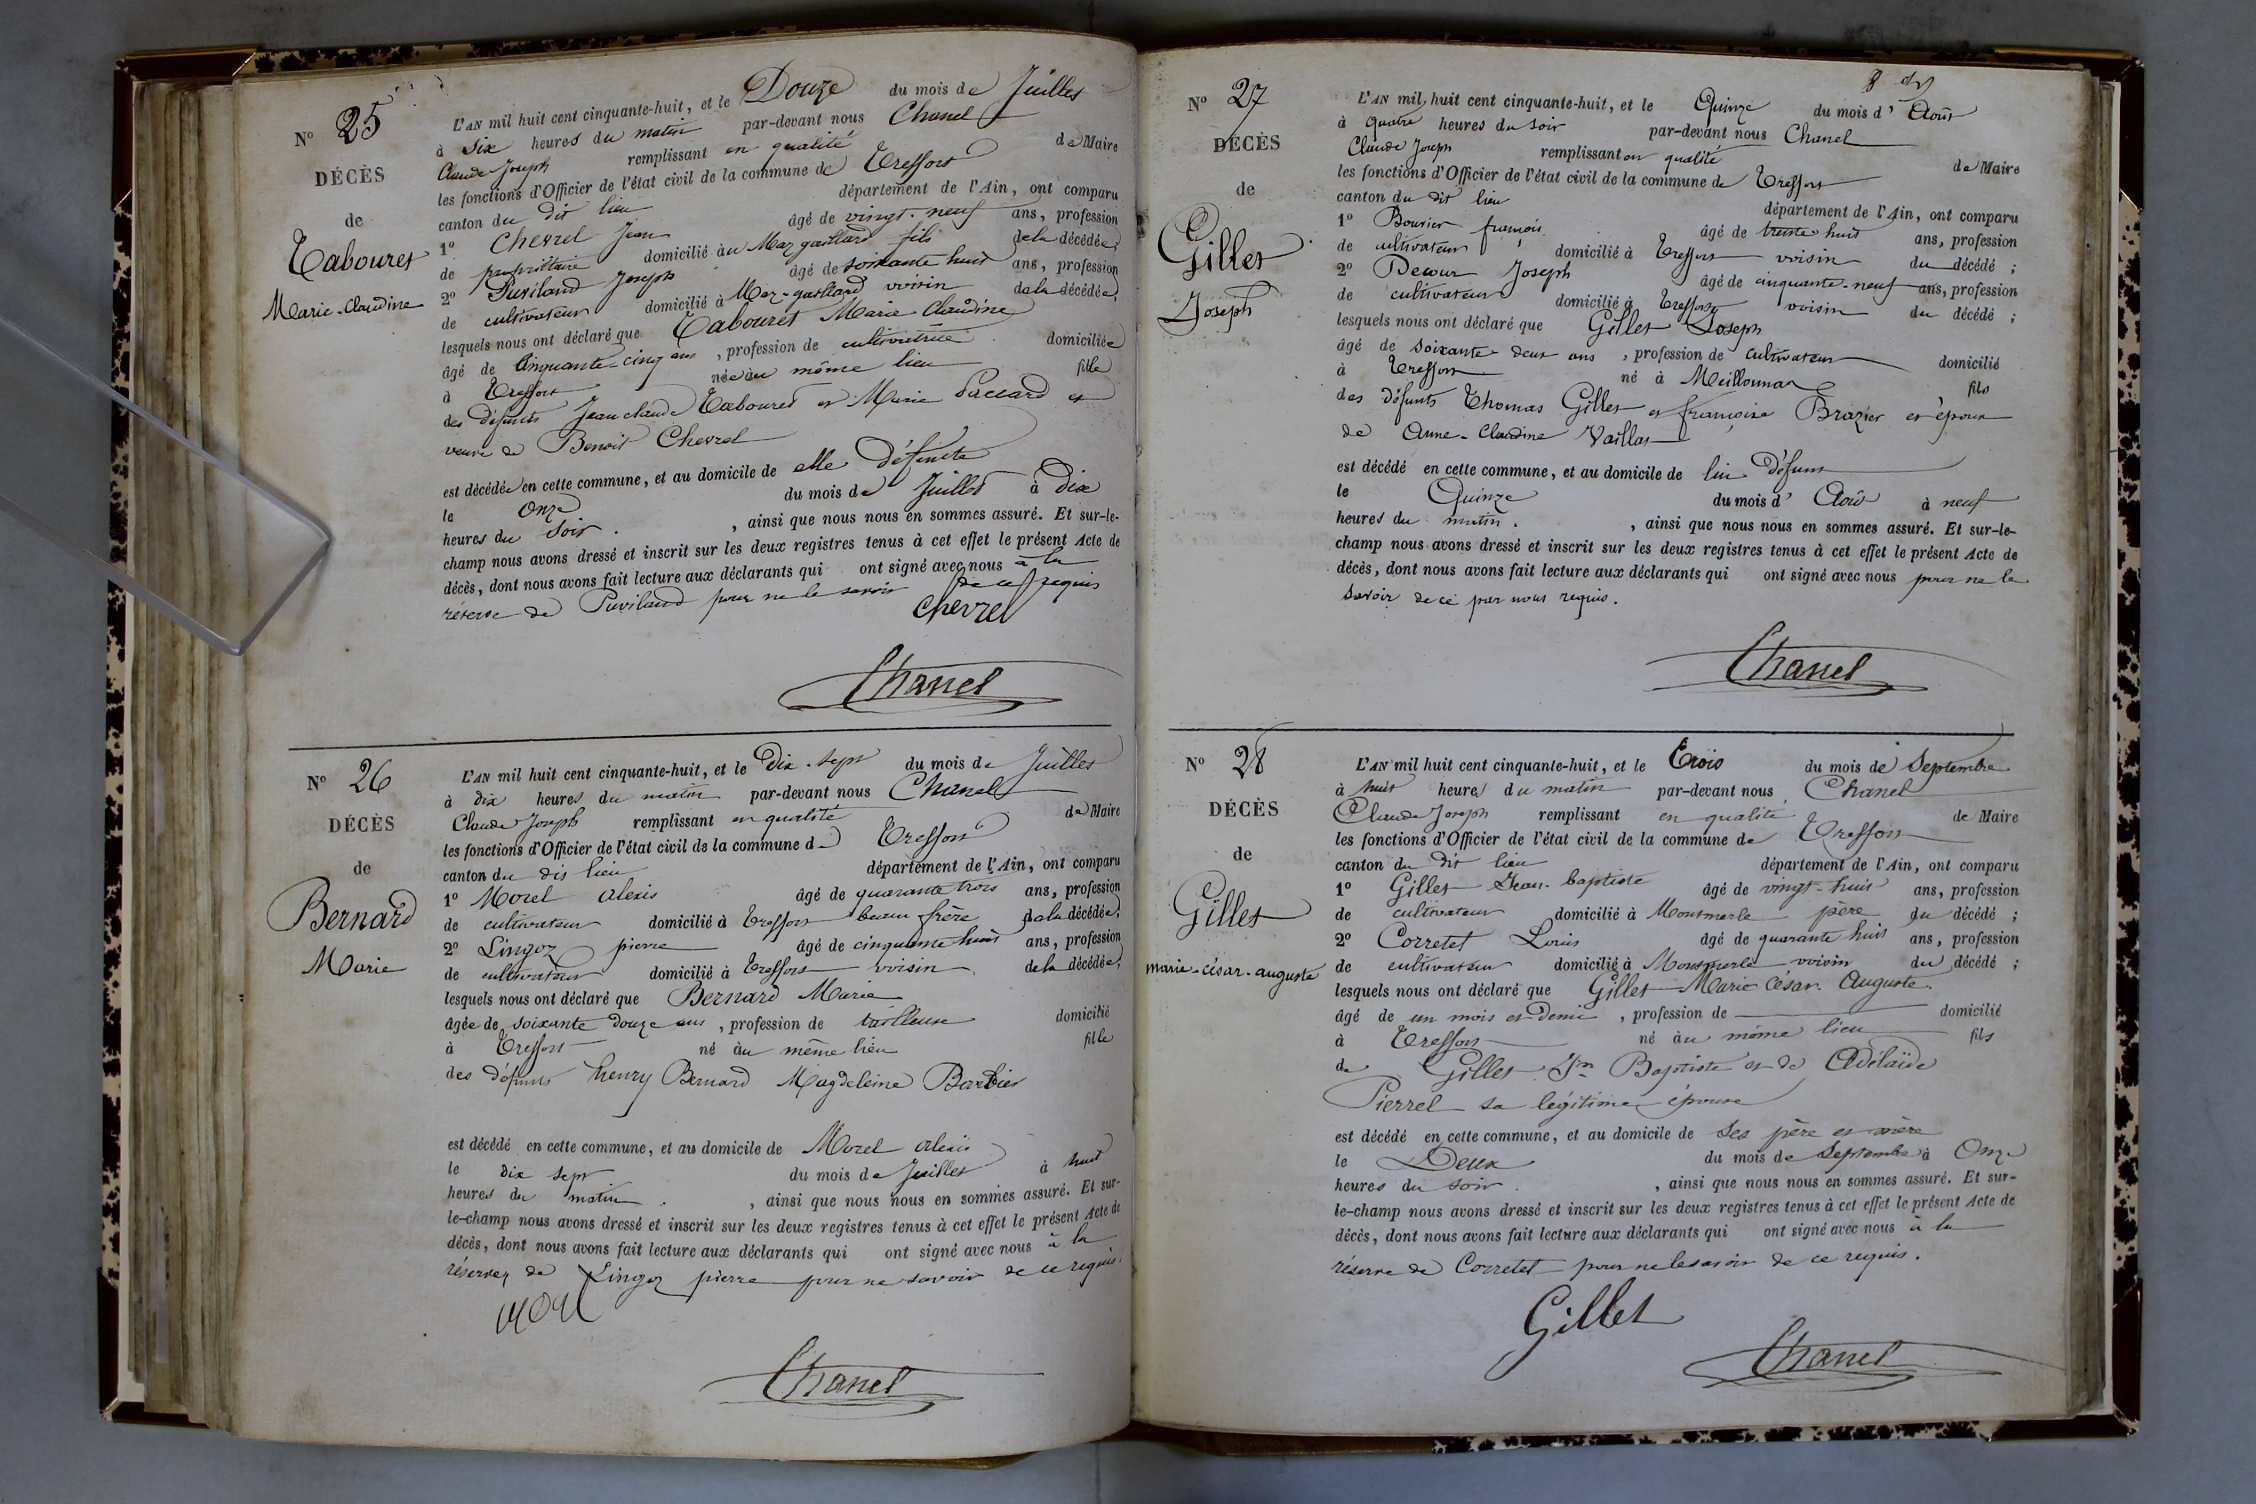 N° 25
DÉCÈS
de
Tabouret
Marie-Claudine
L'AN mil huit cent cinquante-huit, et le Douze du mois de Juillet
à Six heures du matin par-devant nous Chanel
Claude Joseph remplissant en qualité de Maire
les fonctions d'Officier de l'état civil de la commune de Treffort
canton du dit lieu département de l'Ain, ont comparu
1° Chevrel Jean âgé de vingt-neuf ans, profession
de propriétaire domicilié au Maz gaillard fils de la décédée;
2° Puviland Joseph âgé de soixante huit ans, profession
de cultivateur domicilié à Maz-gaillard voisin de la décédée;
lesquels nous ont déclaré que Tabouret Marie Claudine
âgé de Cinquante-cinq ans, profession de cultivatrice domiciliée
à Treffort née au même lieu fille
des défunts Jean claude Tabouret et Marie Paccard et
veuve de Benoit Chevrel
est décédée en cette commune, et au domicile de elle défunte
le Onze du mois de Juillet à Dix
heures du soir, ainsi que nous nous en sommes assuré. Et sur-le-
champ nous avons dressé et inscrit sur les deux registres tenus à cet effet le présent Acte de
décès, dont nous avons fait lecture aux déclarants qui ont signé avec nous à la
réserve de Puviland pour ne le savoir de ce requis
Chevrel
Chanel
N° 26
DÉCÈS
de
Bernard
Marie
L'AN mil huit cent cinquante-huit, et le Dix-sept du mois de Juillet
à dix heures du matin par-devant nous Chanel
Claude Joseph remplissant en qualité de Maire
les fonctions d'Officier de l'état civil de la commune de Treffort
canton du dit lieu département de l'Ain, ont comparu
1° Morel Alexis âgé de quarante trois ans, profession
de cultivateur domicilié à Treffort beau frère de la décédée;
2° Lingoz pierre âgé de cinquante huit ans, profession
de cultivateur domicilié à Treffort voisin de la décédée;
lesquels nous ont déclaré que Bernard Marie
âgée de soixante douze ans, profession de tailleuse domicilié
à Treffort né au même lieu fille
des défunts henry Bernard Magdeleine Barbier
est décédé en cette commune, et au domicile de Morel alexis
le dix sept du mois de Juillet à huit
heures du matin, ainsi que nous nous en sommes assuré. Et sur-
le-champ nous avons dressé et inscrit sur les deux registres tenus à cet effet le présent Acte de
décès, dont nous avons fait lecture aux déclarants qui ont signé avec nous à la
réserve de Lingoz pierre pour ne savoir de ce requis.
Morel
Chanel
N° 27
DÉCÈS
de
Gillet
Joseph
L'AN mil huit cent cinquante-huit, et le Quinze du mois d'Août
à quatre heures du soir par-devant nous Chanel
Claude Joseph remplissant en qualité de Maire
les fonctions d'Officier de l'état civil de la commune de Treffort
canton du dit lieu département de l'Ain, ont comparu
1° Bouvier françois âgé de trente huit ans, profession
de cultivateur domicilié à Treffort voisin du décédé;
2° Decour Joseph âgé de cinquante-neuf ans, profession
de cultivateur domicilié à Treffort voisin du décédé;
lesquels nous ont déclaré que Gillet Joseph
âgé de soixante deux ans, profession de cultivateur domicilié
à Treffort né à Meillonnas fils
des défunts Thomas Gillet et françoise Brazier et époux
de Anne-Claudine Vaillat
est décédé en cette commune, et au domicile de lui défunt
le Quinze du mois d'Août à neuf
heures du matin, ainsi que nous nous en sommes assuré. Et sur-le-
champ nous avons dressé et inscrit sur les deux registres tenus à cet effet le présent Acte de
décès, dont nous avons fait lecture aux déclarants qui ont signé avec nous pour ne le
savoir de ce par nous requis.
Chanel
N° 28
DÉCÈS
de
Gillet
marie-césar-auguste
L'AN mil huit cent cinquante-huit, et le Trois du mois de Septembre
à huit heures du matin par-devant nous Chanel
Claude Joseph remplissant en qualité de Maire
les fonctions d'Officier de l'état civil de la commune de Treffort
canton du dit lieu département de l'Ain, ont comparu
1° Gillet Jean-baptiste âgé de vingt-huit ans, profession
de cultivateur domicilié à Montmerle père du décédé;
2° Corretet Louis âgé de quarante huit ans, profession
de cultivateur domicilié à Montmerle voisin du décédé;
lesquels nous ont déclaré que Gillet Marie César Auguste
âgé de un mois et demi, profession de domicilié
à Treffort né au même lieu fils
de Gillet Jn Baptiste et de Adélaïde
Pierrel sa légitime épouse
est décédé en cette commune, et au domicile de ses père et mère
le Deux du mois de Septembre à Onze
heures du soir, ainsi que nous nous en sommes assuré. Et sur-
le-champ nous avons dressé et inscrit sur les deux registres tenus à cet effet le présent Acte de
décès, dont nous avons fait lecture aux déclarants qui ont signé avec nous à la
réserve de Corretet pour ne le savoir de ce requis.
Gillet
Chanel